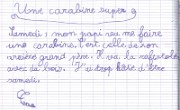 Une carabine super g
Samedi : mon papi va me faire
une carabine. C'est celle de son
arrière grand père. Il va la refabriquer
avec de bois. J'ai trop hâte d'être
samedi.